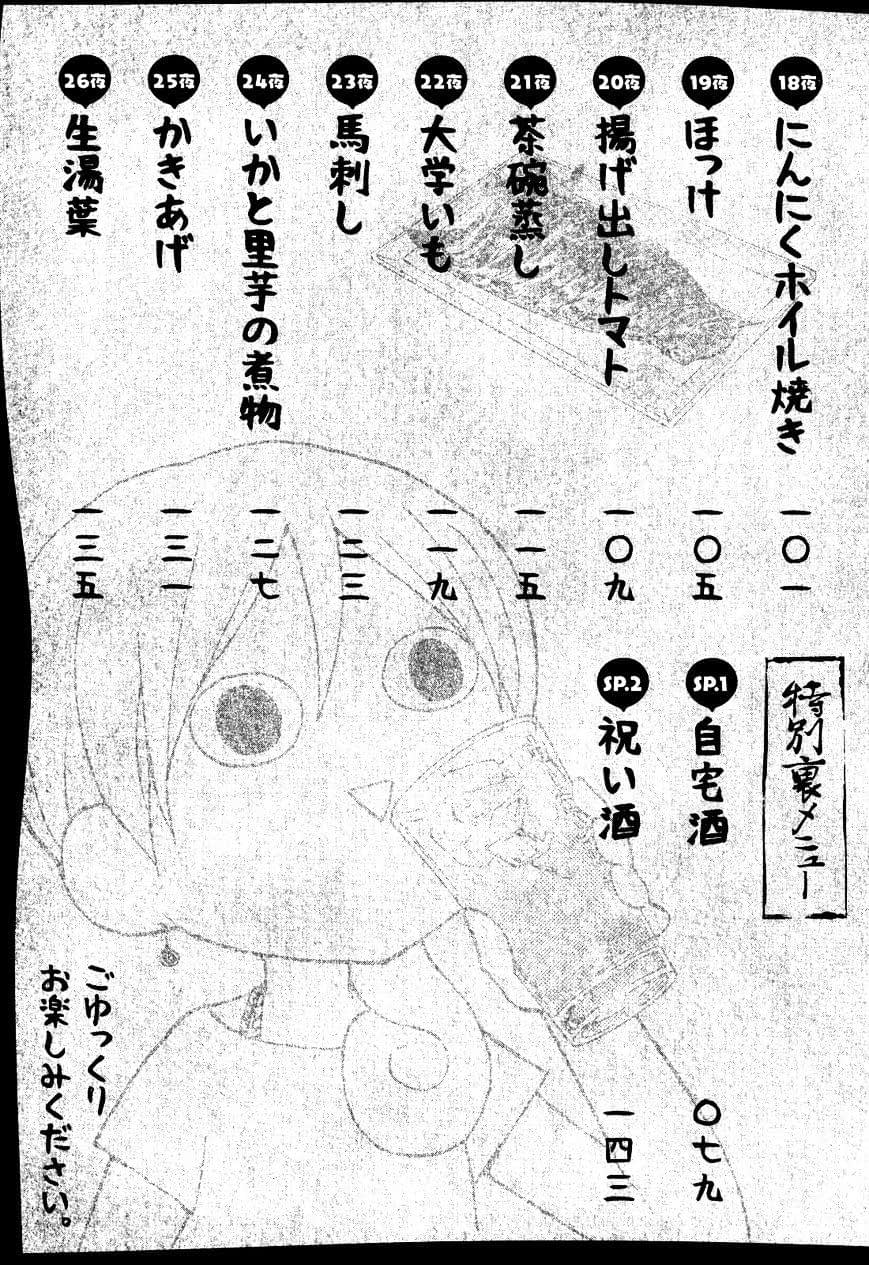 18夜 にんにくホイル焼き 一〇一
19夜 ほっけ 一〇五
20夜 揚げ出しトマト 一〇九
21夜 茶碗蒸し 一一五
22夜 大学いも 一一九
23夜 馬刺し 一二三
24夜 いかと里芋の煮物 一二七
25夜 かきあげ 一三一
26夜 生湯葉 一三五
特別裏メニュー
SP.1 自宅酒 〇七九
SP.2 祝い酒 一四三
ごゆっくり
お楽しみください。